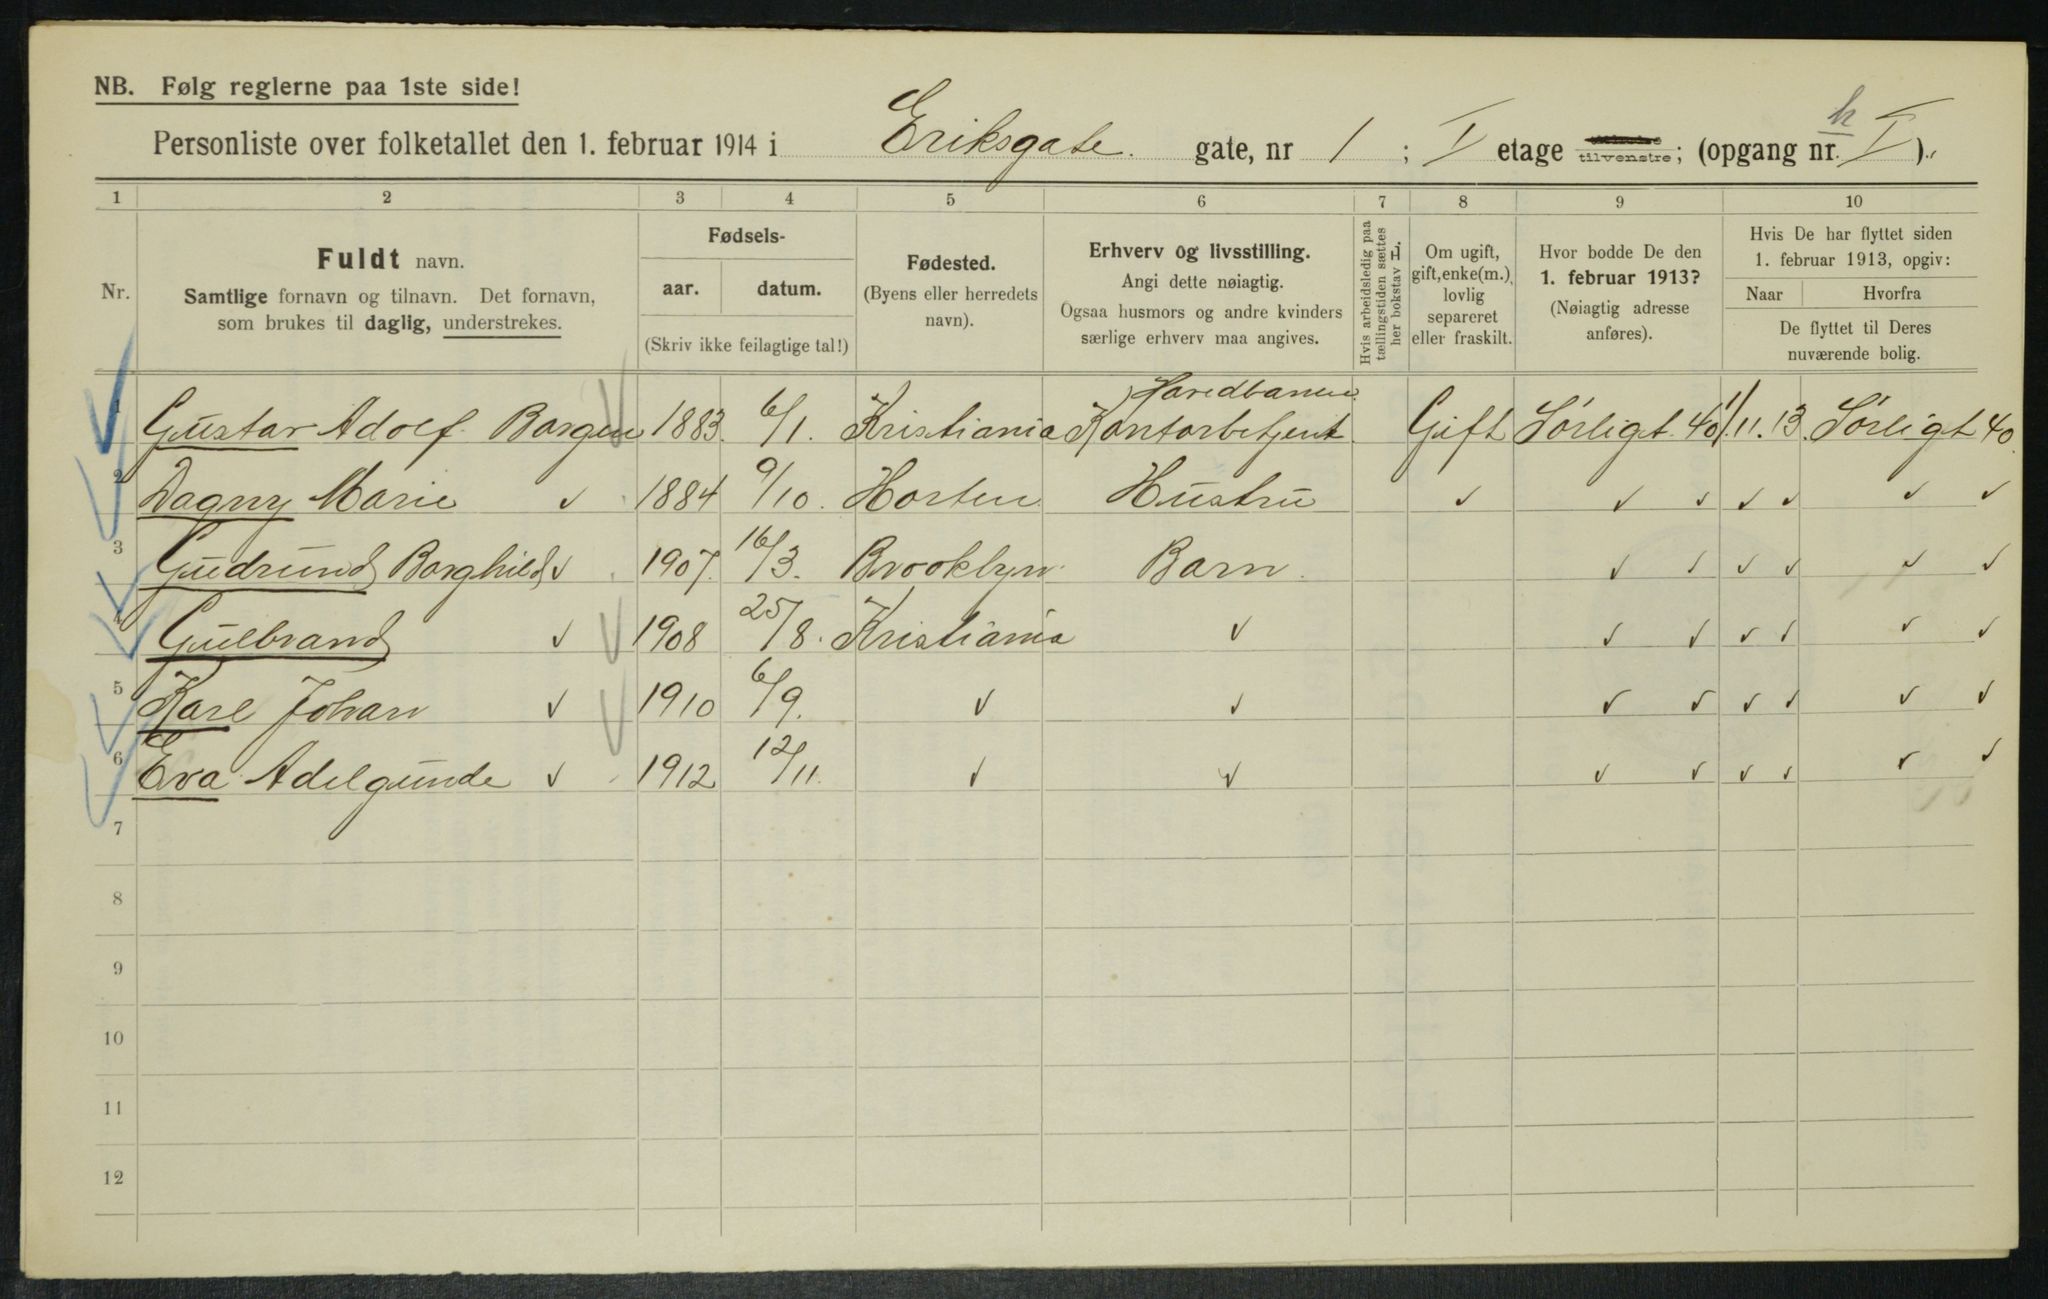 NB. Følg reglerne paa 1ste side!
Personliste over folketallet den 1. februar 1914 i Eriksgate. gate, nr 1 ; I etage tilvenstre; (opgang nr. I ).
h
1 2 3 4 5 6 7 8 9 10
Nr.
Fuldt navn.
Samtlige fornavn og tilnavn. Det fornavn,
som brukes til daglig, understrekes.
Fødsels-
aar. datum.
(Skriv ikke feilagtige tal!)
Fødested.
(Byens eller herredets
navn).
Erhverv og livsstilling.
Angi dette nøiagtig.
Ogsaa husmors og andre kvinders
særlige erhverv maa angives.
Hvis arbeidsledig paa
tællingstiden sættes
her bokstav L.
Om ugift,
gift, enke(m.),
lovlig
separeret
eller fraskilt.
Hvor bodde De den
1. februar 1913?
(Nøiagtig adresse
anføres).
Hvis De har flyttet siden
1. februar 1913, opgiv:
Naar Hvorfra
De flyttet til Deres
nuværende bolig.
Hovedbanen
1 Gustav Adolf Borgen 1883. 6/1. Kristiania Kontorbetjent Gift Sörligt. 40 1/11.13. Sörligt 40.
2 Dagny Marie √ 1884 9/10. Horten Hustru √ √ √ √ √ √ √
3 Gudrund Borghild √ 1907. 16/3. Brooklyn Barn. √ √ √ √ √ √
4 Gulbrand √ 1908 25/8. Kristiania √ √ √ √ √ √ √
5 Karl Johan √ 1910 6/9. √ √ √ √ √ √ √ √
6 Eva Adelgunde √ 1912 12/11. √ √ √ √ √ √ √ √
7
8
9
10
11
12